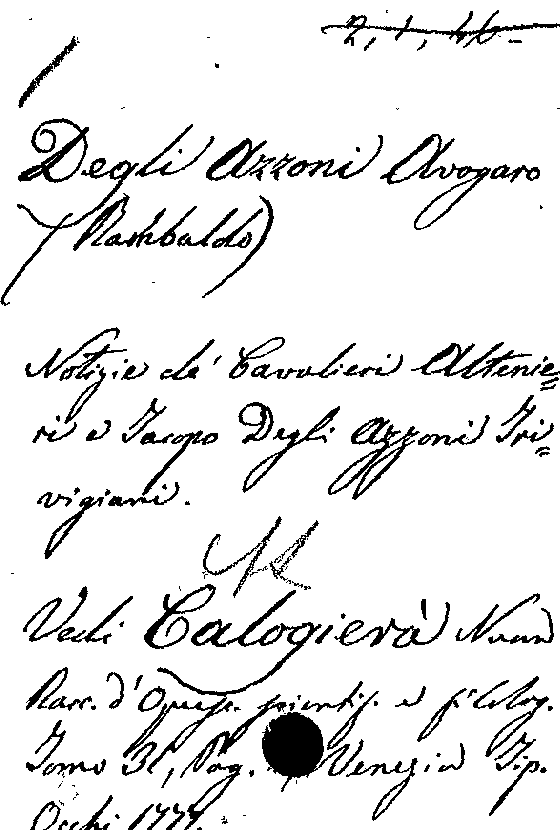 2, 1, 46 -
Degli Azzoni Avogaro
(Rambaldo)
Notizie de' Cavalieri Altenie=
ri e Jacopo Degli Azzoni Tri=
vigiani.
Vedi Calogierà Nuova
Racc. d'Opusc. scientif. e filolog.
Tomo 31, Pag. Venezia Tip.
Occhi 1777.